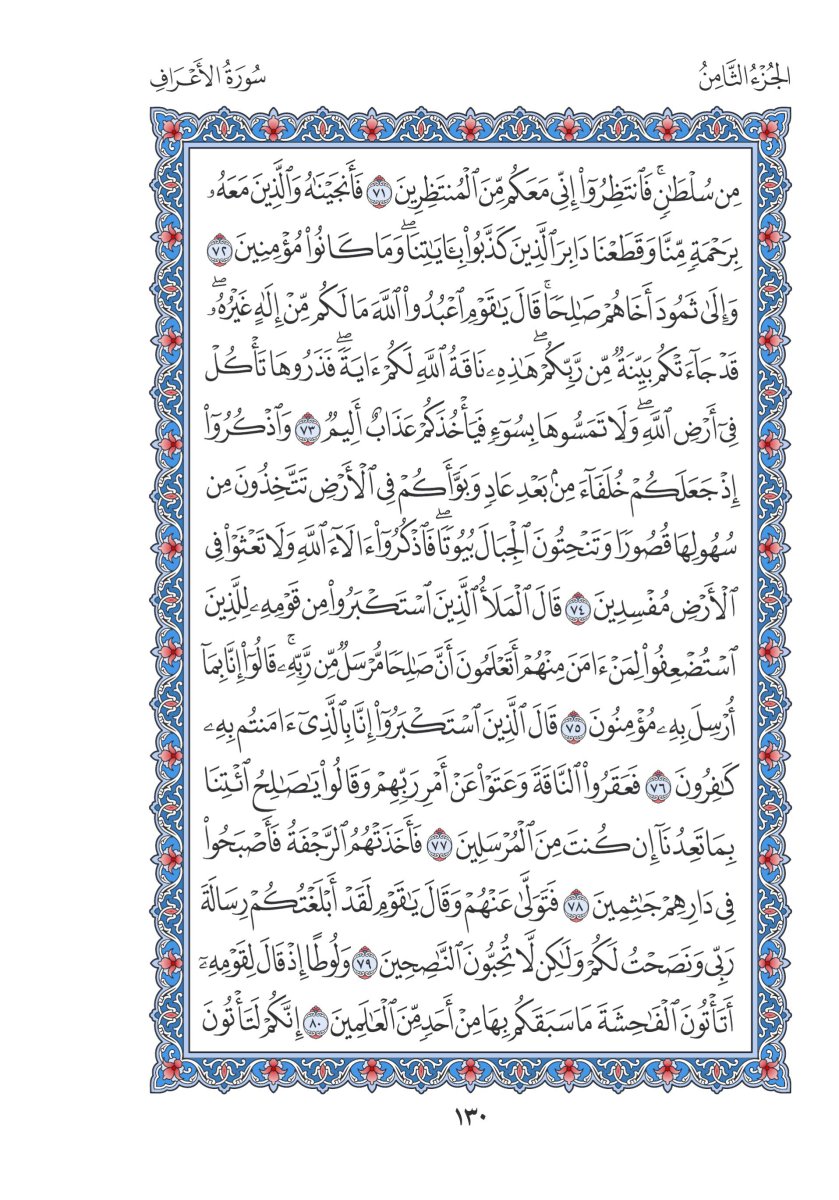 الجُزْءُ الثَّامِنُ
سُورَةُ الأَعْرَافِ
مِن سُلْطَٰنٖۚ فَٱنتَظِرُوٓاْ إِنِّي مَعَكُم مِّنَ ٱلْمُنتَظِرِينَ ٧١ فَأَنجَيْنَٰهُ وَٱلَّذِينَ مَعَهُۥ
بِرَحْمَةٖ مِّنَّا وَقَطَعْنَا دَابِرَ ٱلَّذِينَ كَذَّبُواْ بِـَٔايَٰتِنَاۖ وَمَا كَانُواْ مُؤْمِنِينَ ٧٢
وَإِلَىٰ ثَمُودَ أَخَاهُمْ صَٰلِحٗاۚ قَالَ يَٰقَوْمِ ٱعْبُدُواْ ٱللَّهَ مَا لَكُم مِّنْ إِلَٰهٍ غَيْرُهُۥۖ
قَدْ جَآءَتْكُم بَيِّنَةٞ مِّن رَّبِّكُمْۖ هَٰذِهِۦ نَاقَةُ ٱللَّهِ لَكُمْ ءَايَةٗۖ فَذَرُوهَا تَأْكُلْ
فِيٓ أَرْضِ ٱللَّهِۖ وَلَا تَمَسُّوهَا بِسُوٓءٖ فَيَأْخُذَكُمْ عَذَابٌ أَلِيمٞ ٧٣ وَٱذْكُرُوٓاْ
إِذْ جَعَلَكُمْ خُلَفَآءَ مِنۢ بَعْدِ عَادٖ وَبَوَّأَكُمْ فِي ٱلْأَرْضِ تَتَّخِذُونَ مِن
سُهُولِهَا قُصُورٗا وَتَنْحِتُونَ ٱلْجِبَالَ بُيُوتٗاۖ فَٱذْكُرُوٓاْ ءَالَآءَ ٱللَّهِ وَلَا تَعْثَوْاْ فِي
ٱلْأَرْضِ مُفْسِدِينَ ٧٤ قَالَ ٱلْمَلَأُ ٱلَّذِينَ ٱسْتَكْبَرُواْ مِن قَوْمِهِۦ لِلَّذِينَ
ٱسْتُضْعِفُواْ لِمَنْ ءَامَنَ مِنْهُمْ أَتَعْلَمُونَ أَنَّ صَٰلِحٗا مُّرْسَلٞ مِّن رَّبِّهِۦۚ قَالُوٓاْ إِنَّا بِمَآ
أُرْسِلَ بِهِۦ مُؤْمِنُونَ ٧٥ قَالَ ٱلَّذِينَ ٱسْتَكْبَرُوٓاْ إِنَّا بِٱلَّذِيٓ ءَامَنتُم بِهِۦ
كَٰفِرُونَ ٧٦ فَعَقَرُواْ ٱلنَّاقَةَ وَعَتَوْاْ عَنْ أَمْرِ رَبِّهِمْ وَقَالُواْ يَٰصَٰلِحُ ٱئْتِنَا
بِمَا تَعِدُنَآ إِن كُنتَ مِنَ ٱلْمُرْسَلِينَ ٧٧ فَأَخَذَتْهُمُ ٱلرَّجْفَةُ فَأَصْبَحُواْ
فِي دَارِهِمْ جَٰثِمِينَ ٧٨ فَتَوَلَّىٰ عَنْهُمْ وَقَالَ يَٰقَوْمِ لَقَدْ أَبْلَغْتُكُمْ رِسَالَةَ
رَبِّي وَنَصَحْتُ لَكُمْ وَلَٰكِن لَّا تُحِبُّونَ ٱلنَّٰصِحِينَ ٧٩ وَلُوطًا إِذْ قَالَ لِقَوْمِهِۦٓ
أَتَأْتُونَ ٱلْفَٰحِشَةَ مَا سَبَقَكُم بِهَا مِنْ أَحَدٖ مِّنَ ٱلْعَٰلَمِينَ ٨٠ إِنَّكُمْ لَتَأْتُونَ
١٣٠